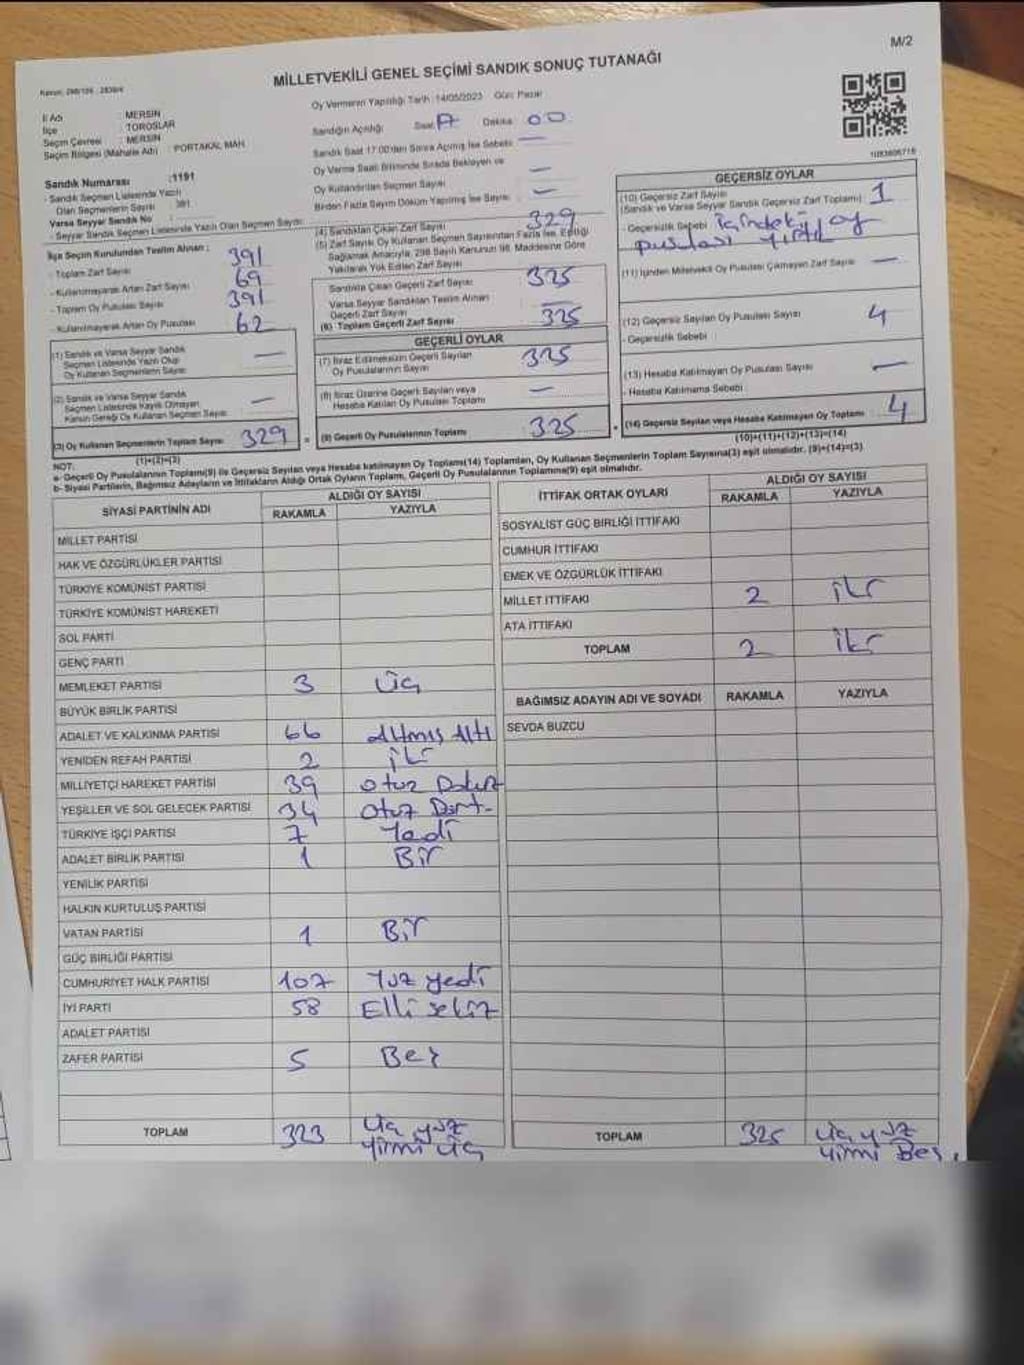 M/2
Kanun: 298/105 , 2839/4
MİLLETVEKİLİ GENEL SEÇİMİ SANDIK SONUÇ TUTANAĞI
Oy Vermenin Yapıldığı Tarih :14/05/2023 Gün: Pazar
İl Adı : MERSİN
İlçe : TOROSLAR
Seçim Çevresi : MERSİN
Seçim Bölgesi (Mahalle Adı) : PORTAKAL MAH.
Sandığın Açıldığı Saat 17 Dakika 00
Sandık Saat 17:00'den Sonra Açılmış İse Sebebi —
Oy Verme Saati Bitiminde Sırada Bekleyen ve
Oy Kullandırılan Seçmen Sayısı —
Birden Fazla Sayım Döküm Yapılmış İse Sayısı —
1083606718
Sandık Numarası :1191
- Sandık Seçmen Listesinde Yazılı
Olan Seçmenlerin Sayısı : 391
Varsa Seyyar Sandık No :
- Seyyar Sandık Seçmen Listesinde Yazılı Olan Seçmen Sayısı
İlçe Seçim Kurulundan Teslim Alınan :
- Toplam Zarf Sayısı 391
- Kullanılmayarak Artan Zarf Sayısı 69
- Toplam Oy Pusulası Sayısı 391
- Kullanılmayarak Artan Oy Pusulası 62
(1) Sandık ve Varsa Seyyar Sandık
Seçmen Listesinde Yazılı Olup
Oy Kullanan Seçmenlerin Sayısı —
(2) Sandık ve Varsa Seyyar Sandık
Seçmen Listesinde Kayıtlı Olmayan
Kanun Gereği Oy Kullanan Seçmen Sayısı —
(3) Oy Kullanan Seçmenlerin Toplam Sayısı 329
(1)+(2)=(3)
(4) Sandıktan Çıkan Zarf Sayısı 329
(5) Zarf Sayısı Oy Kullanan Seçmen Sayısından Fazla İse, Eşitliği
Sağlamak Amacıyla, 298 Sayılı Kanunun 98. Maddesine Göre
Yakılarak Yok Edilen Zarf Sayısı
Sandıkta Çıkan Geçerli Zarf Sayısı 325
Varsa Seyyar Sandıktan Teslim Alınan
Geçerli Zarf Sayısı —
(6) Toplam Geçerli Zarf Sayısı 325
GEÇERLİ OYLAR
(7) İtiraz Edilmeksizin Geçerli Sayılan
Oy Pusulalarının Sayısı 325
(8) İtiraz Üzerine Geçerli Sayılan veya
Hesaba Katılan Oy Pusulası Toplamı —
(9) Geçerli Oy Pusulalarının Toplamı 325
GEÇERSİZ OYLAR
(10) Geçersiz Zarf Sayısı
(Sandık ve Varsa Seyyar Sandık Geçersiz Zarf Toplamı) 1
- Geçersizlik Sebebi İçindeki oy
pusulası yırtıl
(11) İçinden Milletvekili Oy Pusulası Çıkmayan Zarf Sayısı —
(12) Geçersiz Sayılan Oy Pusulası Sayısı 4
- Geçersizlik Sebebi
(13) Hesaba Katılmayan Oy Pusulası Sayısı —
- Hesaba Katılmama Sebebi
(14) Geçersiz Sayılan veya Hesaba Katılmayan Oy Toplamı 4
(10)+(11)+(12)+(13)=(14)
NOT:
a- Geçerli Oy Pusulalarının Toplamı(9) ile Geçersiz Sayılan veya Hesaba katılmayan Oy Toplamı(14) Toplamları, Oy Kullanan Seçmenlerin Toplam Sayısına(3) eşit olmalıdır. (9)+(14)=(3)
b- Siyasi Partilerin, Bağımsız Adayların ve İttifakların Aldığı Ortak Oyların Toplamı, Geçerli Oy Pusulalarının Toplamına(9) eşit olmalıdır.
SİYASİ PARTİNİN ADI ALDIĞI OY SAYISI
RAKAMLA YAZIYLA
MİLLET PARTİSİ
HAK VE ÖZGÜRLÜKLER PARTİSİ
TÜRKİYE KOMÜNİST PARTİSİ
TÜRKİYE KOMÜNİST HAREKETİ
SOL PARTİ
GENÇ PARTİ
MEMLEKET PARTİSİ 3 Üç
BÜYÜK BİRLİK PARTİSİ
ADALET VE KALKINMA PARTİSİ 66 Altmış Altı
YENİDEN REFAH PARTİSİ 2 iki
MİLLİYETÇİ HAREKET PARTİSİ 39 Otuz Dokuz
YEŞİLLER VE SOL GELECEK PARTİSİ 34 Otuz Dört
TÜRKİYE İŞÇİ PARTİSİ 7 Yedi
ADALET BİRLİK PARTİSİ 1 Bir
YENİLİK PARTİSİ
HALKIN KURTULUŞ PARTİSİ
VATAN PARTİSİ 1 Bir
GÜÇ BİRLİĞİ PARTİSİ
CUMHURİYET HALK PARTİSİ 107 Yüz yedi
İYİ PARTİ 58 Elli sekiz
ADALET PARTİSİ
ZAFER PARTİSİ 5 Beş
TOPLAM 323 Üç yüz
yirmi üç
İTTİFAK ORTAK OYLARI ALDIĞI OY SAYISI
RAKAMLA YAZIYLA
SOSYALİST GÜÇ BİRLİĞİ İTTİFAKI
CUMHUR İTTİFAKI
EMEK VE ÖZGÜRLÜK İTTİFAKI
MİLLET İTTİFAKI 2 iki
ATA İTTİFAKI
TOPLAM 2 iki
BAĞIMSIZ ADAYIN ADI VE SOYADI RAKAMLA YAZIYLA
SEVDA BUZCU
TOPLAM 325 Üç yüz
yirmi Beş